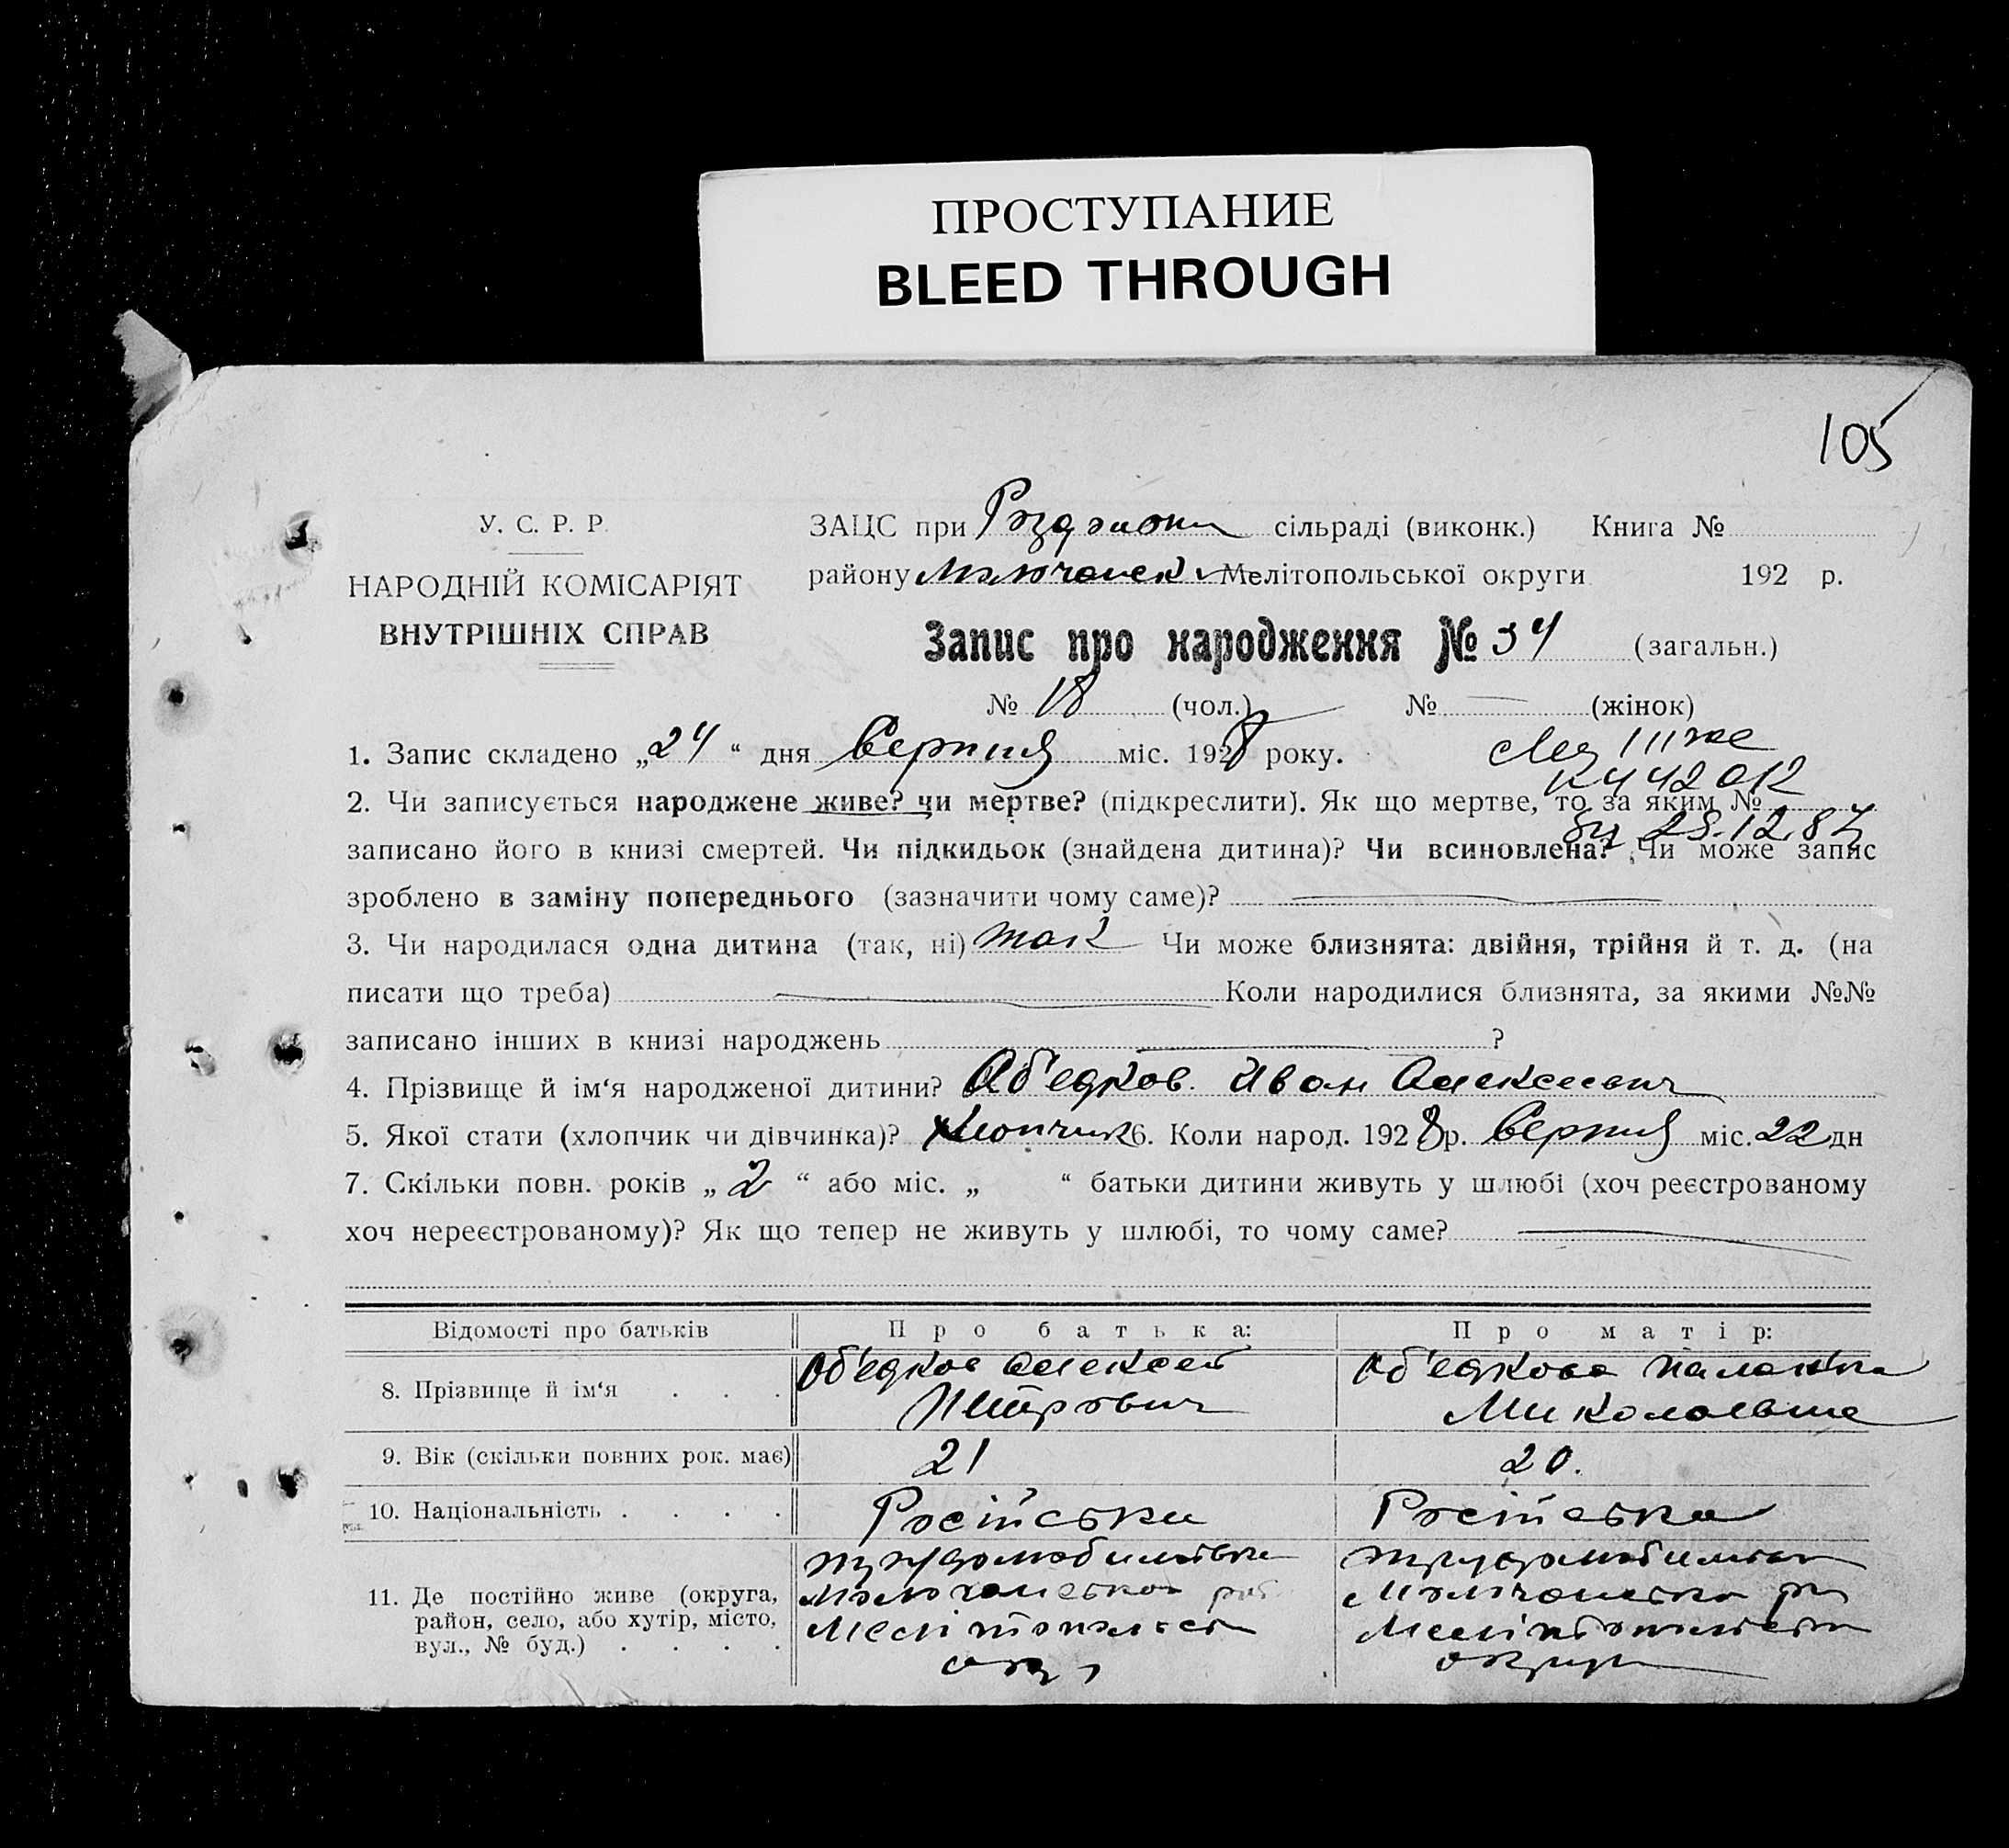 ПРОСТУПАНИЕ
BLEED THROUGH
105
У. С. Р. Р.
НАРОДНІЙ КОМІСАРІЯТ
ВНУТРІШНІХ СПРАВ
ЗАЦС при сільраді (виконк.) Книга №
району Молочанськ Мелітопольської округи 192 р.
Запис про народження № 34 (загальн.)
№ 18 (чол.) № — (жінок)
1. Запис складено „24“ дня Серпня міс. 1928 року.
2. Чи записується народжене живе? чи мертве? (підкреслити). Як що мертве, то за яким №
28.12.87
записано його в книзі смертей. Чи підкидьок (знайдена дитина)? Чи всиновлена? Чи може запис
зроблено в заміну попереднього (зазначити чому саме)?
3. Чи народилася одна дитина (так, ні) так Чи може близнята: двійня, трійня й т. д. (на
писати що треба) Коли народилися близнята, за якими №№
записано інших в книзі народжень ?
4. Прізвище й ім‘я народженої дитини? Об'едков. Иван Алексеевич
5. Якої стати (хлопчик чи дівчинка)? Хлопчик 6. Коли народ. 1928 р. Серпня міс. 22 дн
7. Скільки повн. років „2“ або міс. „ “ батьки дитини живуть у шлюбі (хоч реєстрованому
хоч нереєстрованому)? Як що тепер не живуть у шлюбі, то чому саме?
Відомості про батьків Про батька: Про матір:
8. Прізвище й ім‘я . . . Об'едков Алексей Петрович Об'едкова Николаевна
9. Вік (скільки повних рок. має) 21 20.
10. Національність . . . . Російська Російська
11. Де постійно живе (округа,
район, село, або хутір, місто,
вул., № буд.) . . . .
Молочанська Молочанська
Мелітопольск Мелітопольська
окр округи